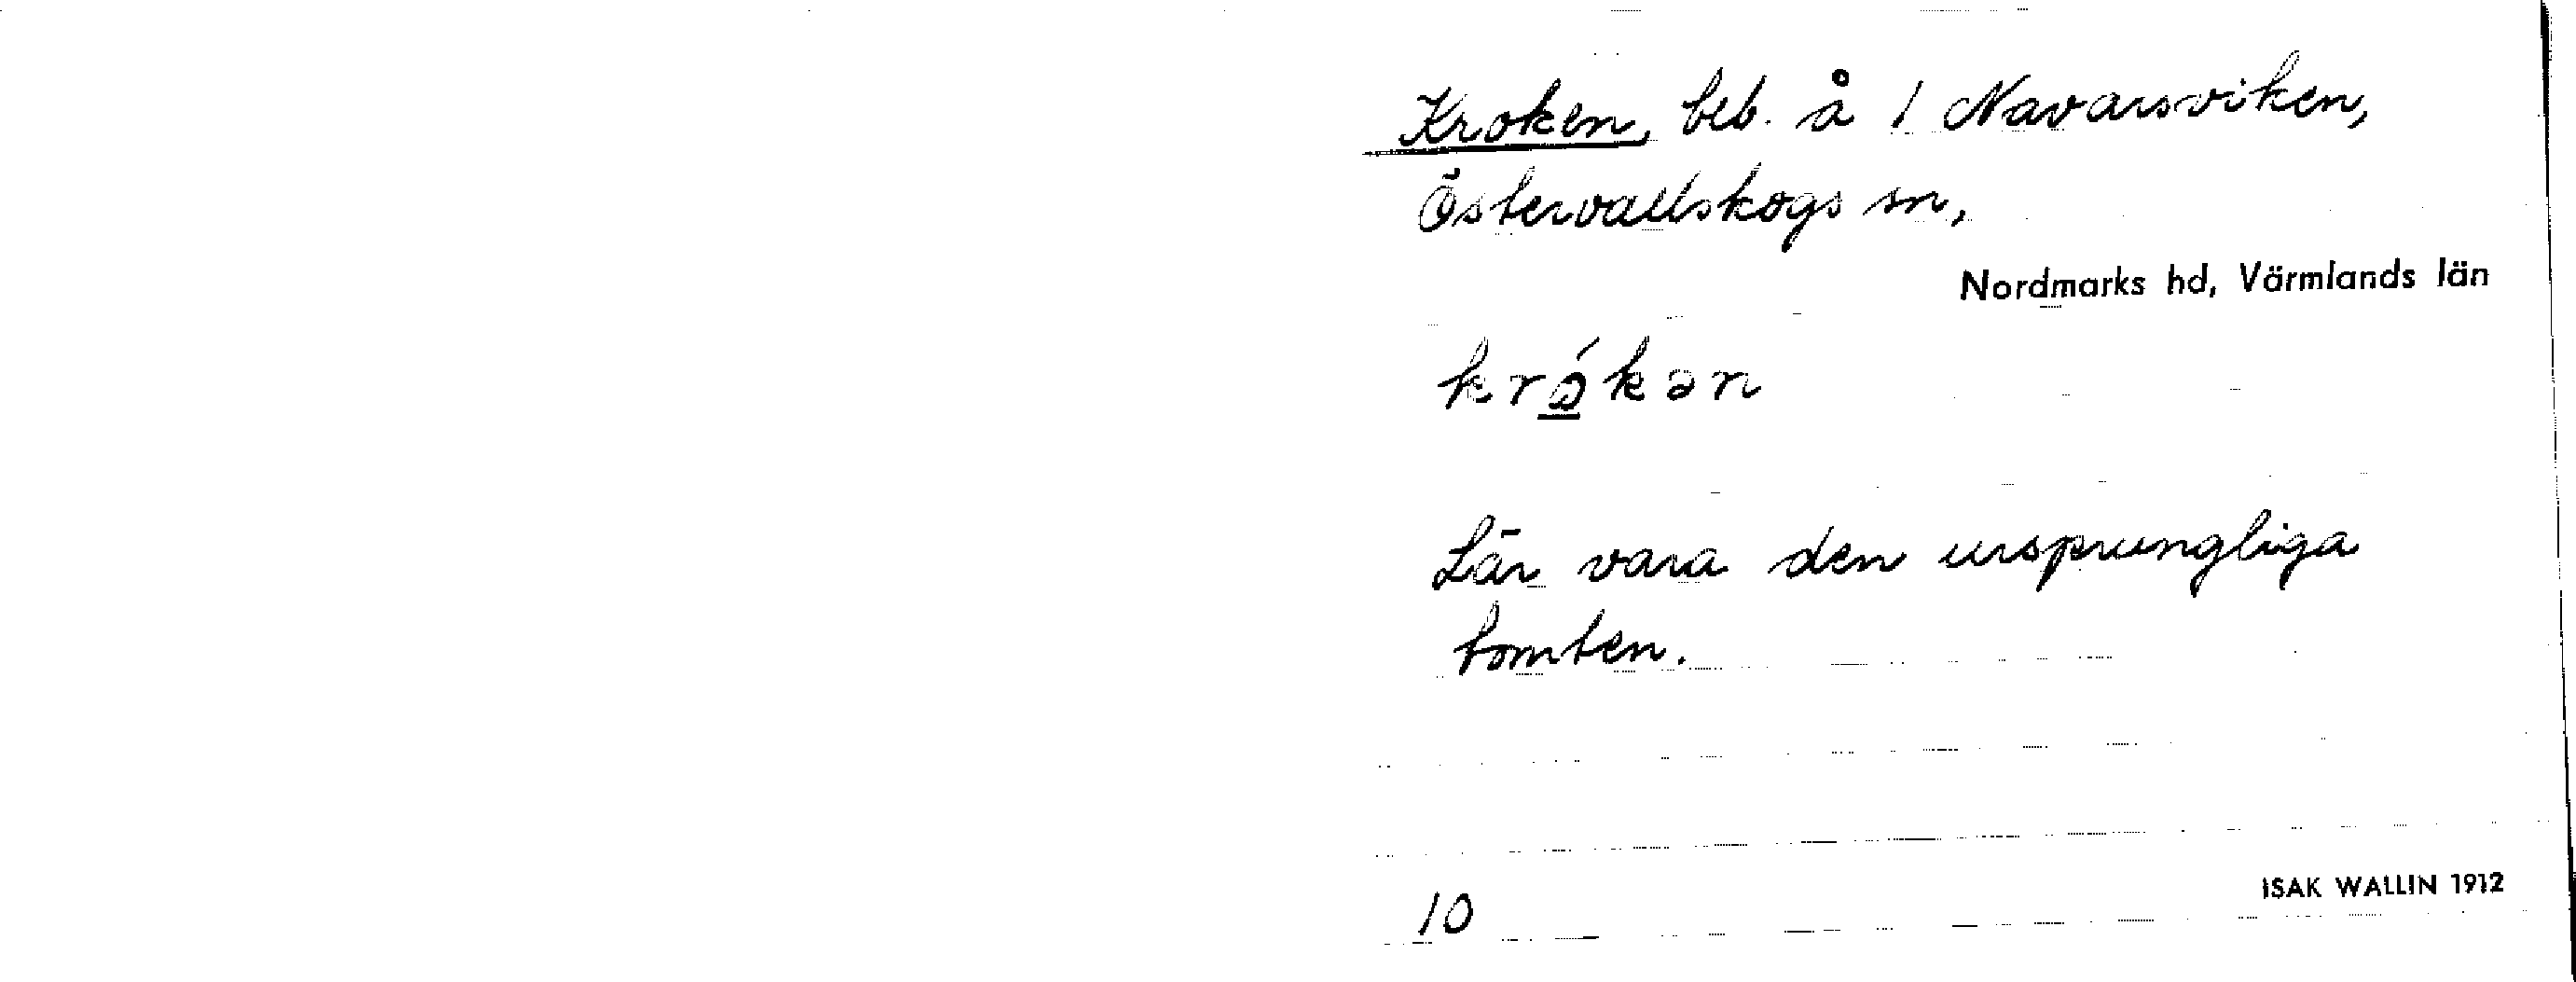 Kroken, beb. å 1 Navarsviken,
Östervallskogs sn,
Nordmarks hd, Värmlands län
krókən
Lär vara den ursprungliga
tomten.
10
ISAK WALLIN 1912